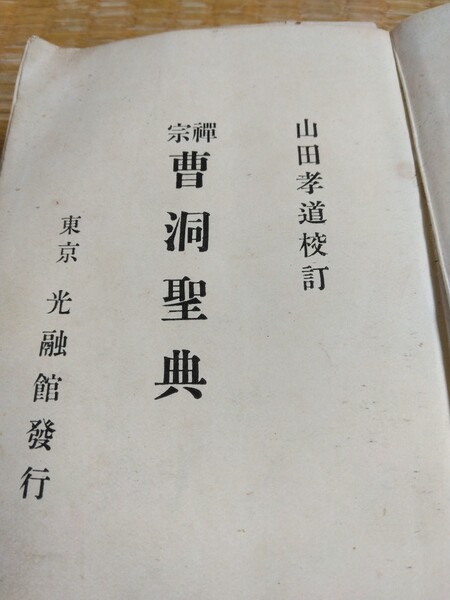 山田孝道校訂
禪宗 曹洞聖典
東京 光融館發行